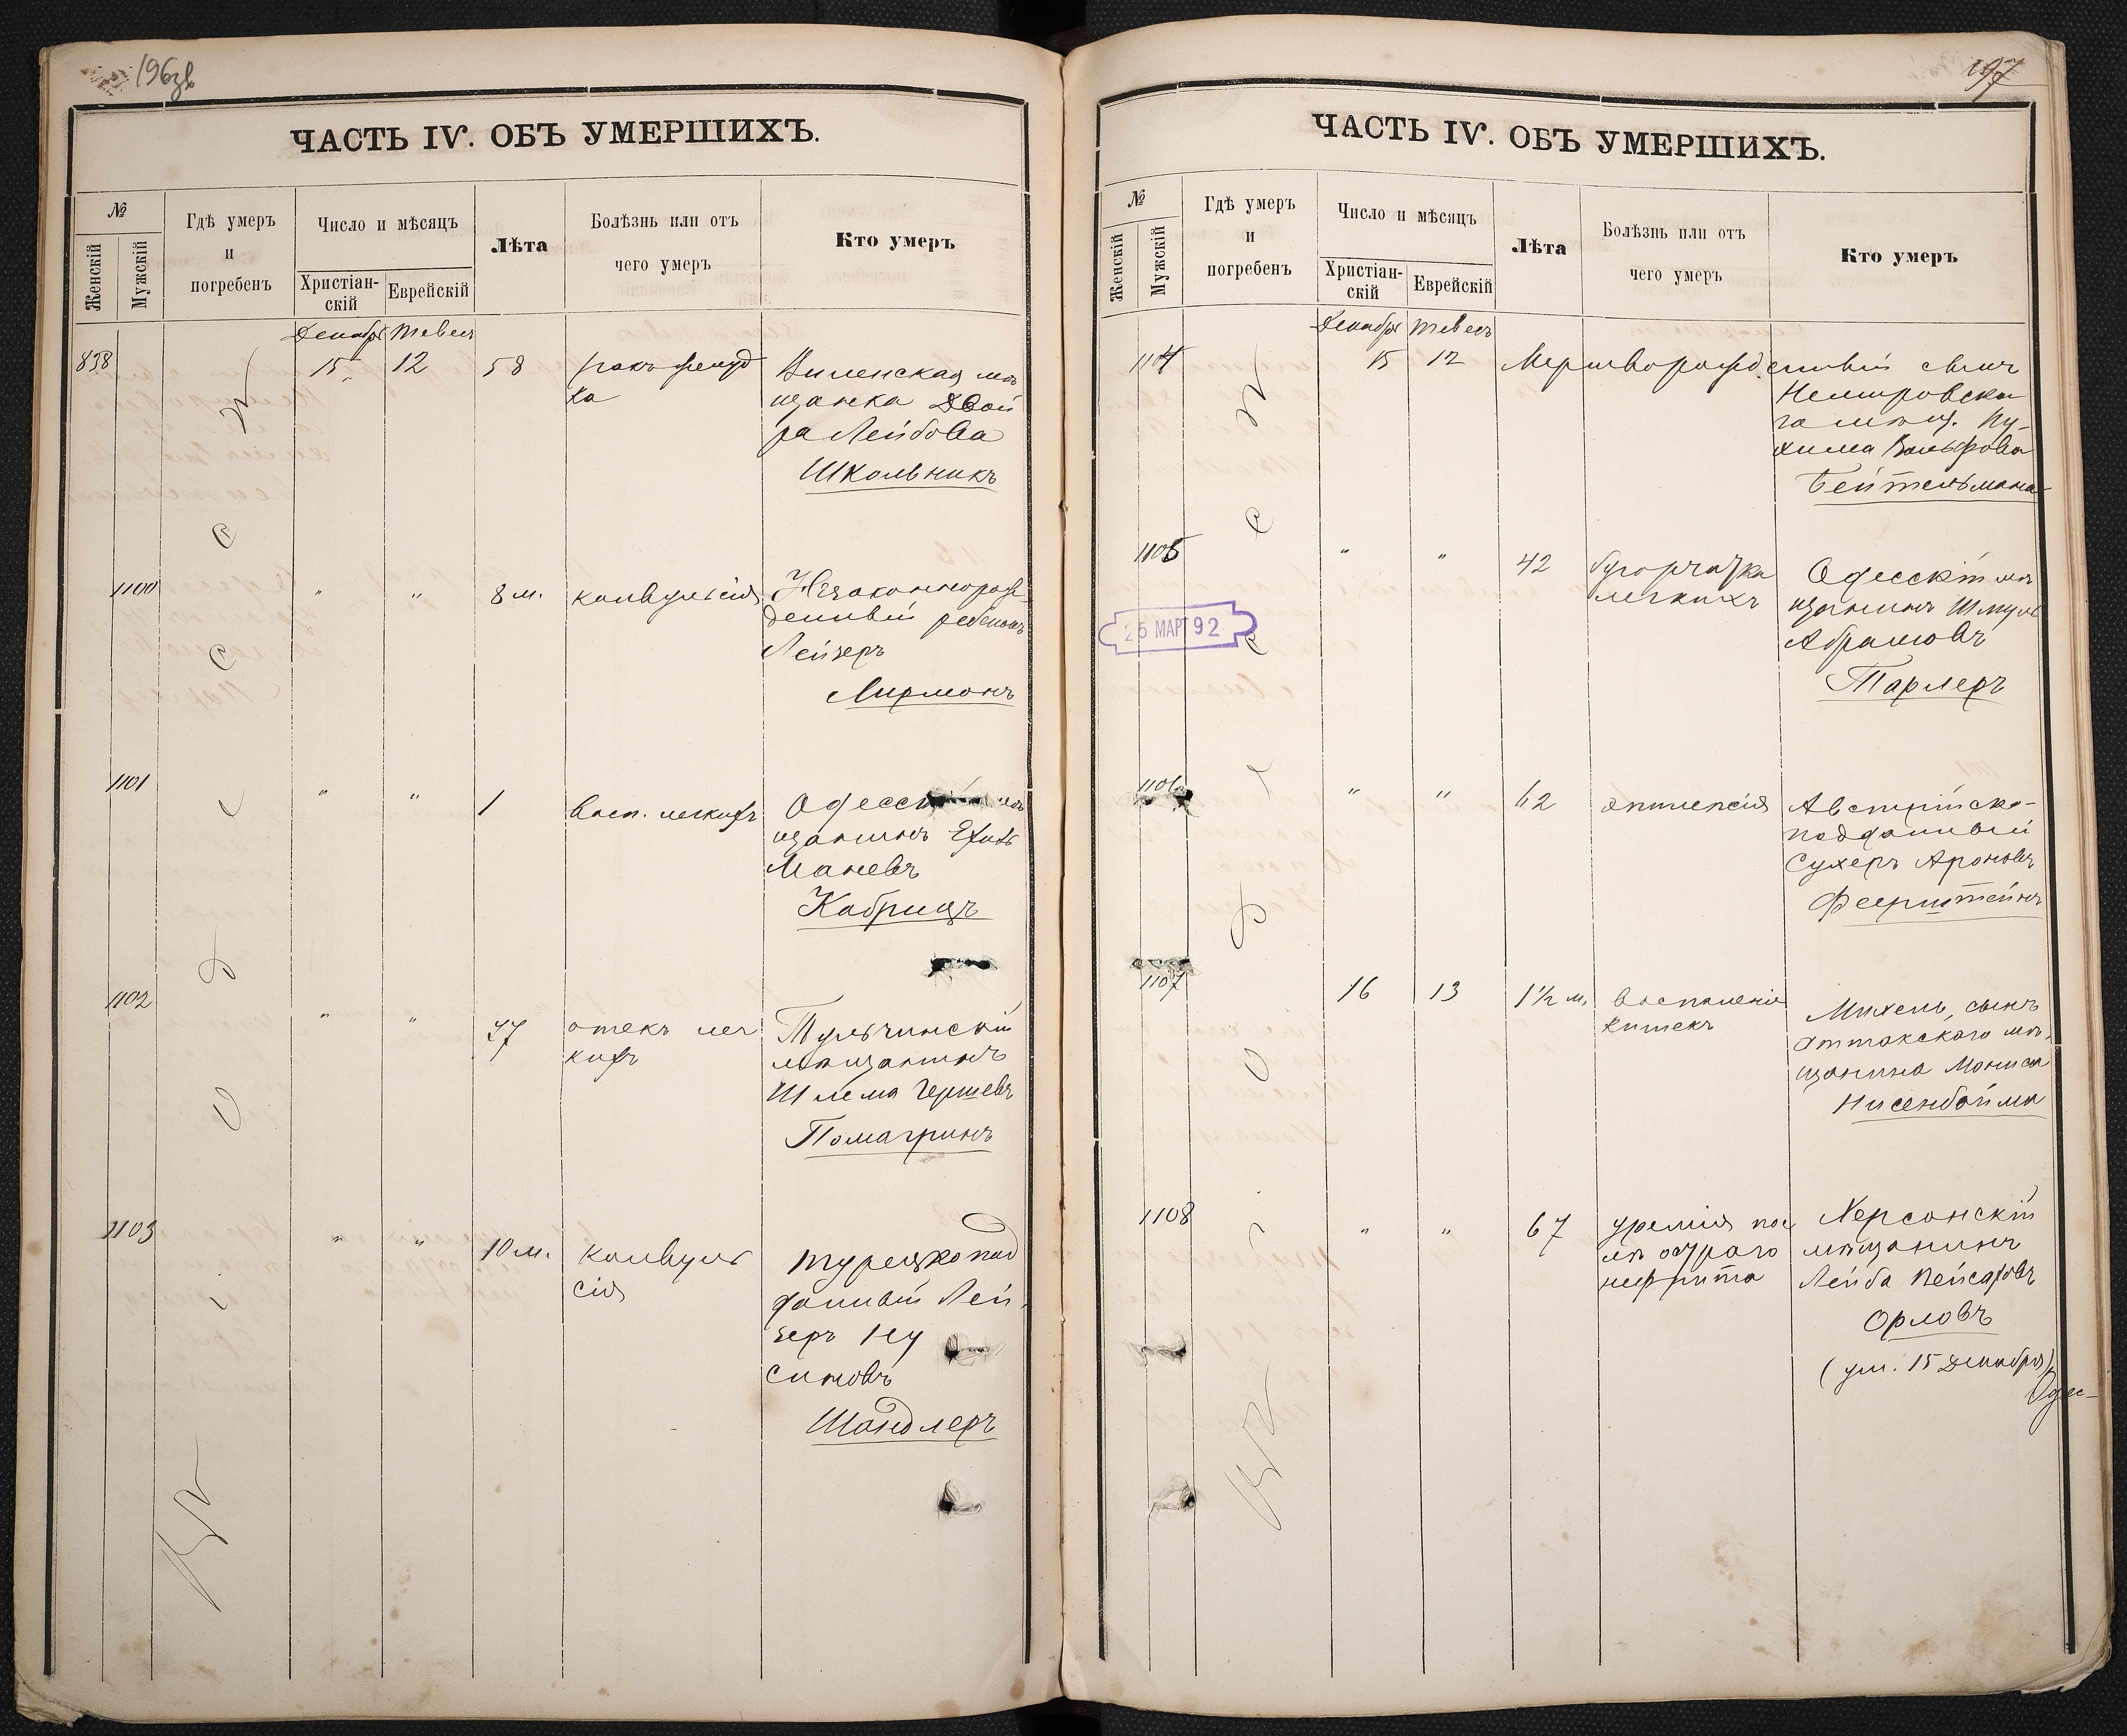 196зв
ЧАСТЬ IV. ОБЪ УМЕРШИХЪ.
№
Женскій
Мужскій
Гдѣ умеръ
и
погребенъ
Число и мѣсяцъ
Христіан-
скій
Еврейскій
Лѣта
Болѣзнь или отъ
чего умеръ
Кто умеръ
Декабря Тевесъ
898 15 12 58 ракъ желуд
ка
Виленская мѣ
щанка Двой
ра Лейбова
Школьникъ
1100 " " 8 м. конвульсія
Незаконнорож-
денный ребенокъ
Лейзеръ
Лирмонъ
1101 " " 1 Восп. легкихъ
Одесск мѣ
щанинъ
Маневъ
Кабрицъ
1102 " " 77 отекъ лег
кихъ
Тульчинскій
мѣщанинъ
Шлема Гершевъ
Помагринъ
1103 " " 10 м. конвуль
сія
турецкопод
данный Лей-
зеръ Ну
симовъ
Шандлеръ
Одессѣ
197
ЧАСТЬ IV. ОБЪ УМЕРШИХЪ.
№
Женскій
Мужскій
Гдѣ умеръ
и
погребенъ
Число и мѣсяцъ
Христіан-
скій
Еврейскій
Лѣта
Болѣзнь или отъ
чего умеръ
Кто умеръ
Декабря Тевесъ
1104 15 12 Мертворожденный сынъ
Немировска
го мѣщ. Ну-
хима Вольфова
Бейтельмана
1105 " " 42 бугорчатка
легкихъ
Одесскій мѣ
щанинъ Шмуль
Абрамовъ
Тарлеръ
25 МАР 92
1106 " " 62 эпилепсія
Австрійско-
подданный
Сухеръ Ароновъ
Феерштейнъ
1107 16 13 1½ м. Воспаленіе
кишекъ
Михель, сынъ
Аттакскаго мѣ-
щанина Мониса
Нисенбойма
1108 " " 67 уремія пос
лѣ остраго
нефрита
Херсонскій
мѣщанинъ
Лейба Пейсаховъ
Орловъ
(ум. 15 Декабря)
Одес-